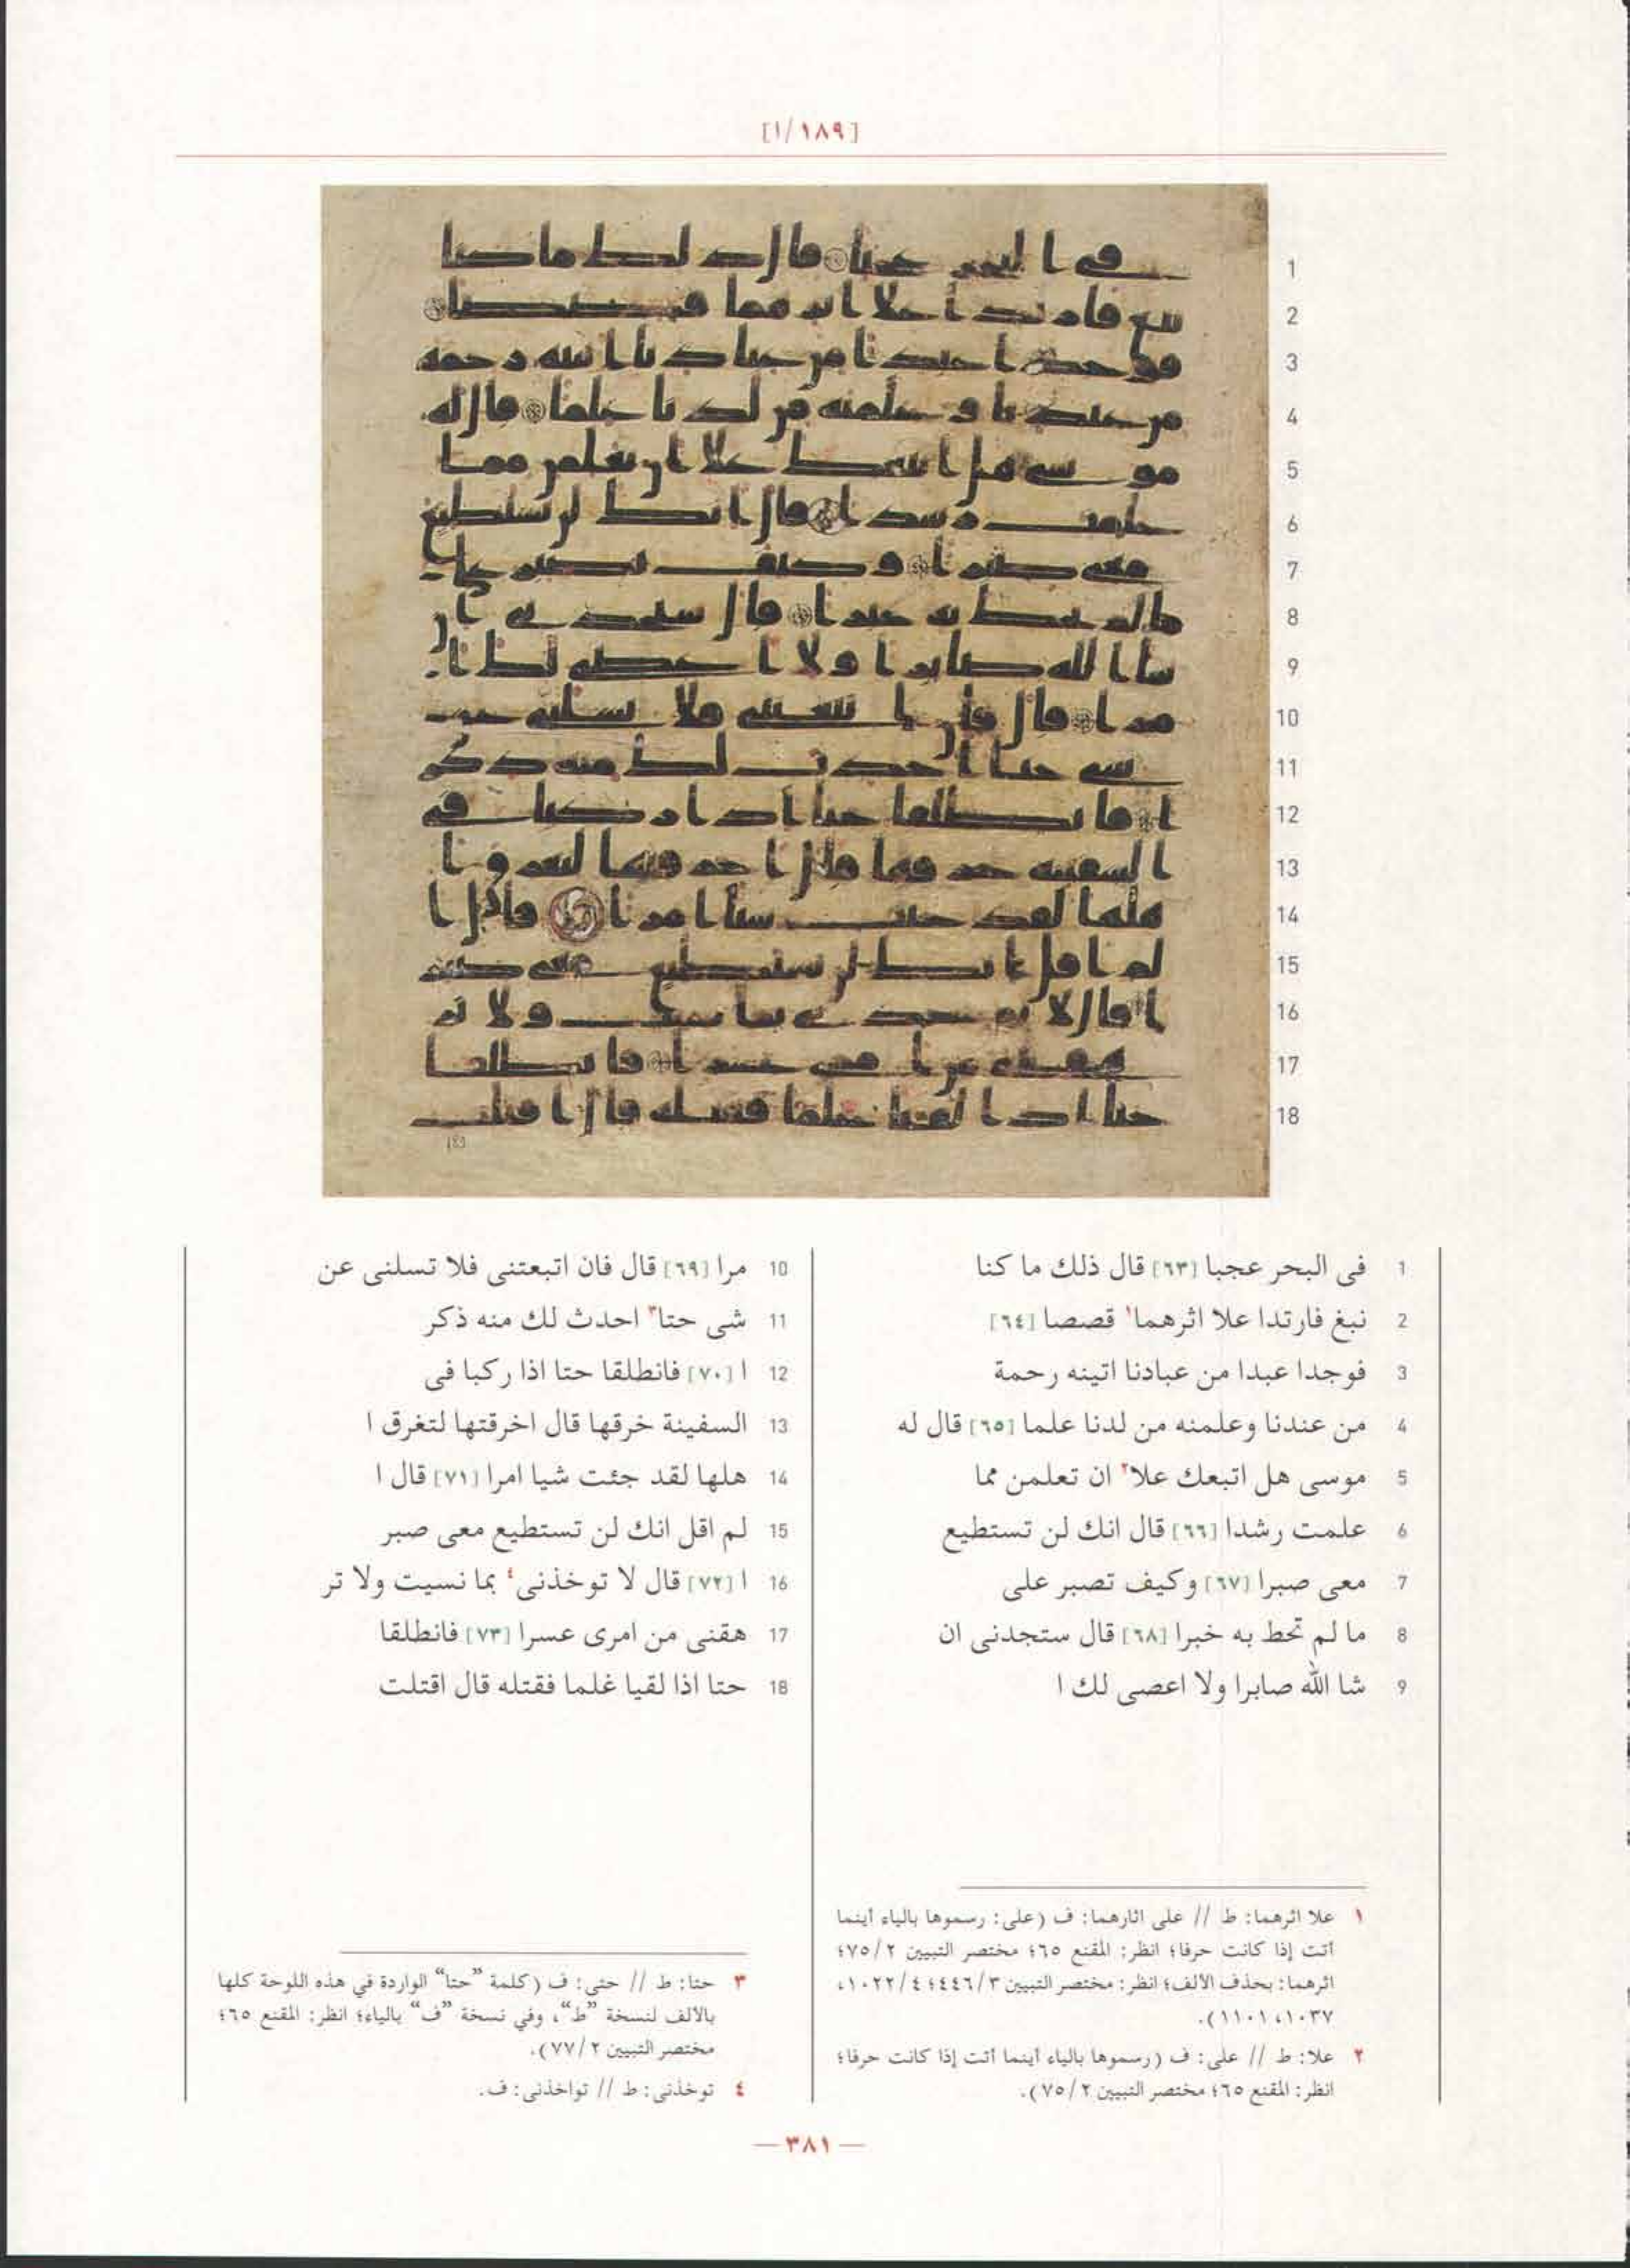 [١/١٨٩]
1 فى البحر عجبا [٦٣] قال ذلك ما كنا
2 نبغ فارتدا علا اثرهما١ قصصا [٦٤]
3 فوجدا عبدا من عبادنا اتينه رحمة
4 من عندنا وعلمنه من لدنا علما [٦٥] قال له
5 موسى هل اتبعك علا٢ ان تعلمن مما
6 علمت رشدا [٦٦] قال انك لن تستطيع
7 معى صبرا [٦٧] وكيف تصبر على
8 ما لم تحط به خبرا [٦٨] قال ستجدنى ان
9 شا الله صابرا ولا اعصى لك ا
10 مرا [٦٩] قال فان اتبعتنى فلا تسلنى عن
11 شى حتا٣ احدث لك منه ذكر
12 ا [٧٠] فانطلقا حتا اذا ركبا فى
13 السفينة خرقها قال اخرقتها لتغرق ا
14 هلها لقد جئت شيا امرا [٧١] قال ا
15 لم اقل انك لن تستطيع معى صبر
16 ا [٧٢] قال لا توخذنى٤ بما نسيت ولا تر
17 هقنى من امرى عسرا [٧٣] فانطلقا
18 حتا اذا لقيا غلما فقتله قال اقتلت
١ علا اثرهما: ط // على اثارهما: ف (على: رسموها بالياء أينما
أتت إذا كانت حرفا؛ انظر: المقنع ٦٥؛ مختصر التبيين ٧٥/٢؛
اثرهما: بحذف الالف؛ انظر: مختصر التبيين ٤٤٦/٣؛ ١٠٢٢/٤،
١٠٣٧، ١١٠١).
٢ علا: ط // على: ف (رسموها بالياء أينما أتت إذا كانت حرفا؛
انظر: المقنع ٦٥؛ مختصر التبيين ٧٥/٢).
٣ حتا: ط // حتى: ف (كلمة “حتا” الواردة في هذه اللوحة كلها
بالالف لنسخة “ط”، وفي نسخة “ف” بالياء؛ انظر: المقنع ٦٥؛
مختصر التبيين ٧٧/٢).
٤ توخذنى: ط // تواخذنى: ف.
— ٣٨١ —